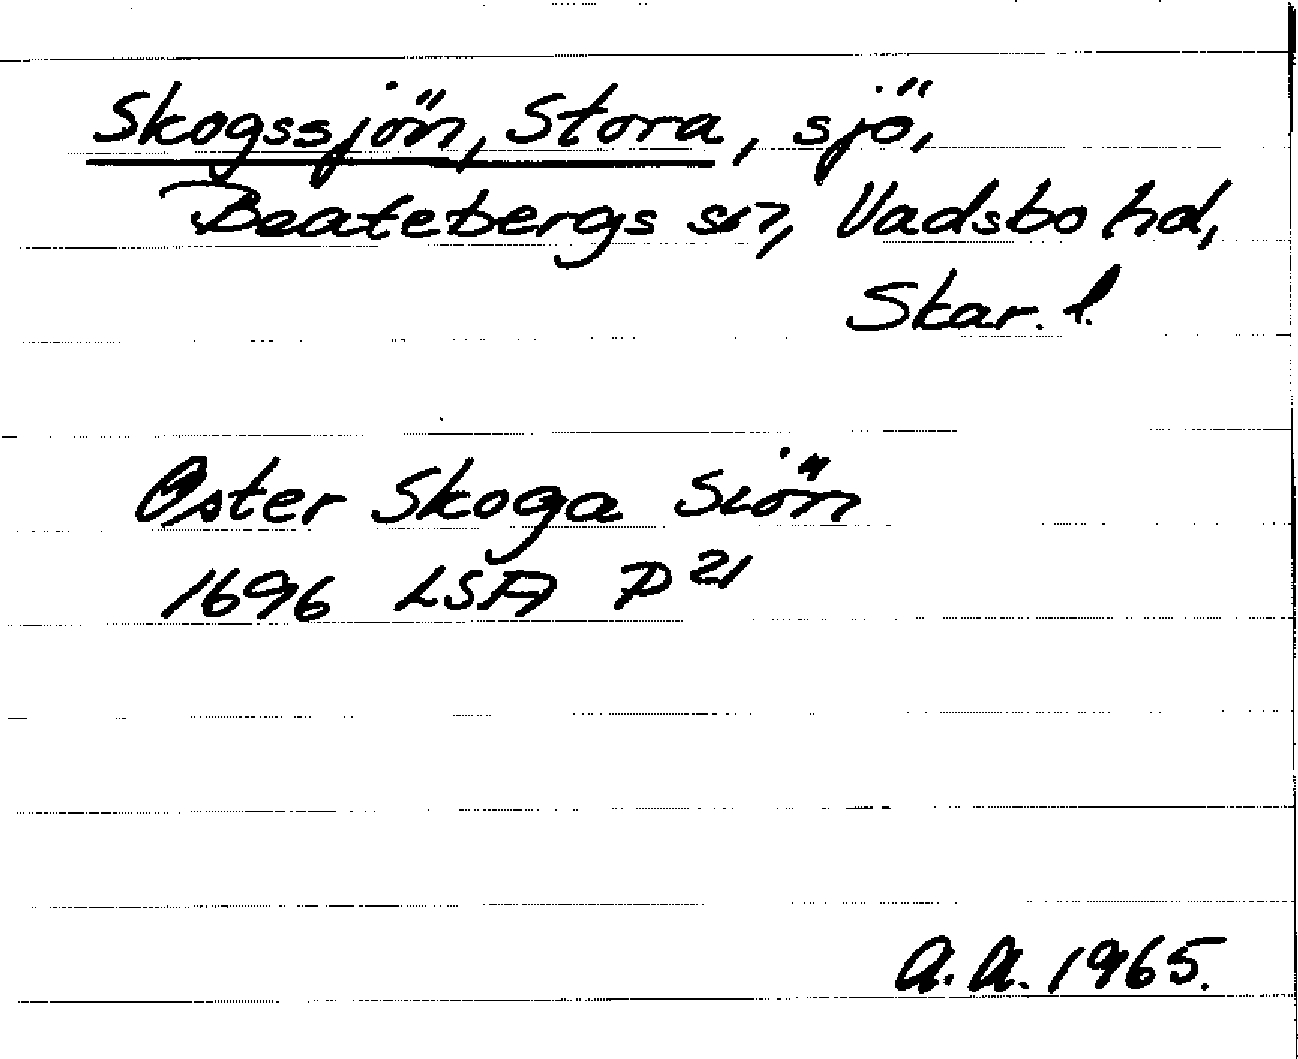 Skogssjön, Stora, sjö,
Beatebergs sn, Vadsbo hd,
Skar. l.
Öster Skoga Siön
1696 LSA P 21
A.A. 1965.